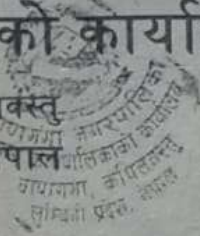 को कार्या
वस्तु
पाल
बाणगंगा नगरपालिका
नगरपालिकाको कार्यालय
बाणगंगा, कपिलवस्तु
लुम्बिनी प्रदेश, नेपाल